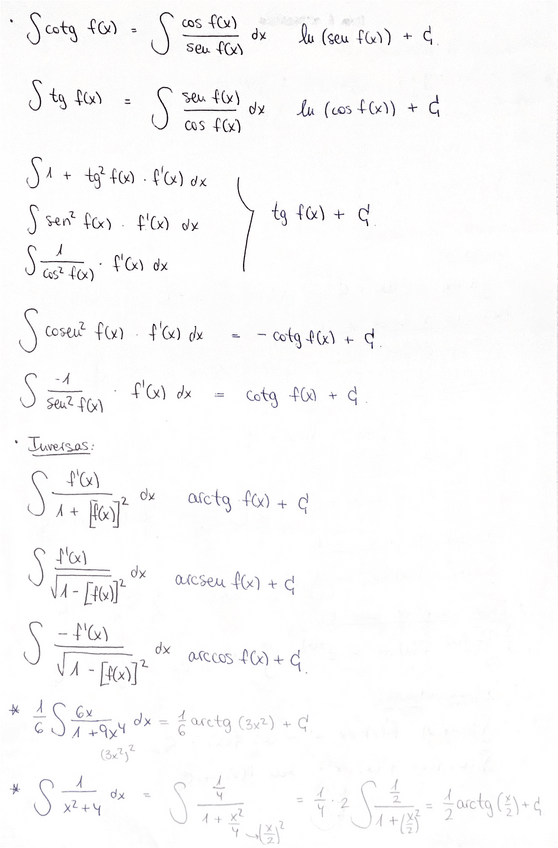 · ∫ cotg f(x) = ∫ cos f(x) / sen f(x) dx ln (sen f(x)) + C.
∫ tg f(x) = ∫ sen f(x) / cos f(x) dx ln (cos f(x)) + C
∫ 1 + tg² f(x) · f'(x) dx
∫ sen² f(x) · f'(x) dx } tg f(x) + C.
∫ 1 / cos² f(x) · f'(x) dx
∫ cosen² f(x) · f'(x) dx = - cotg f(x) + C.
∫ -1 / sen² f(x) · f'(x) dx = cotg f(x) + C.
· Inversas:
∫ f'(x) / 1 + [f(x)]² dx arctg f(x) + C
∫ f'(x) / √1 - [f(x)]² dx arcsen f(x) + C
∫ - f'(x) / √1 - [f(x)]² dx arccos f(x) + C.
* 1/6 ∫ 6x / 1 + 9x⁴ dx = 1/6 arctg (3x²) + C
(3x²)²
* ∫ 1 / x² + 4 dx = ∫ 1/4 / 1 + x²/4 → (x/2)² = 1/4 · 2 ∫ 1/2 / 1 + (x/2)² = 1/2 arctg (x/2) + C